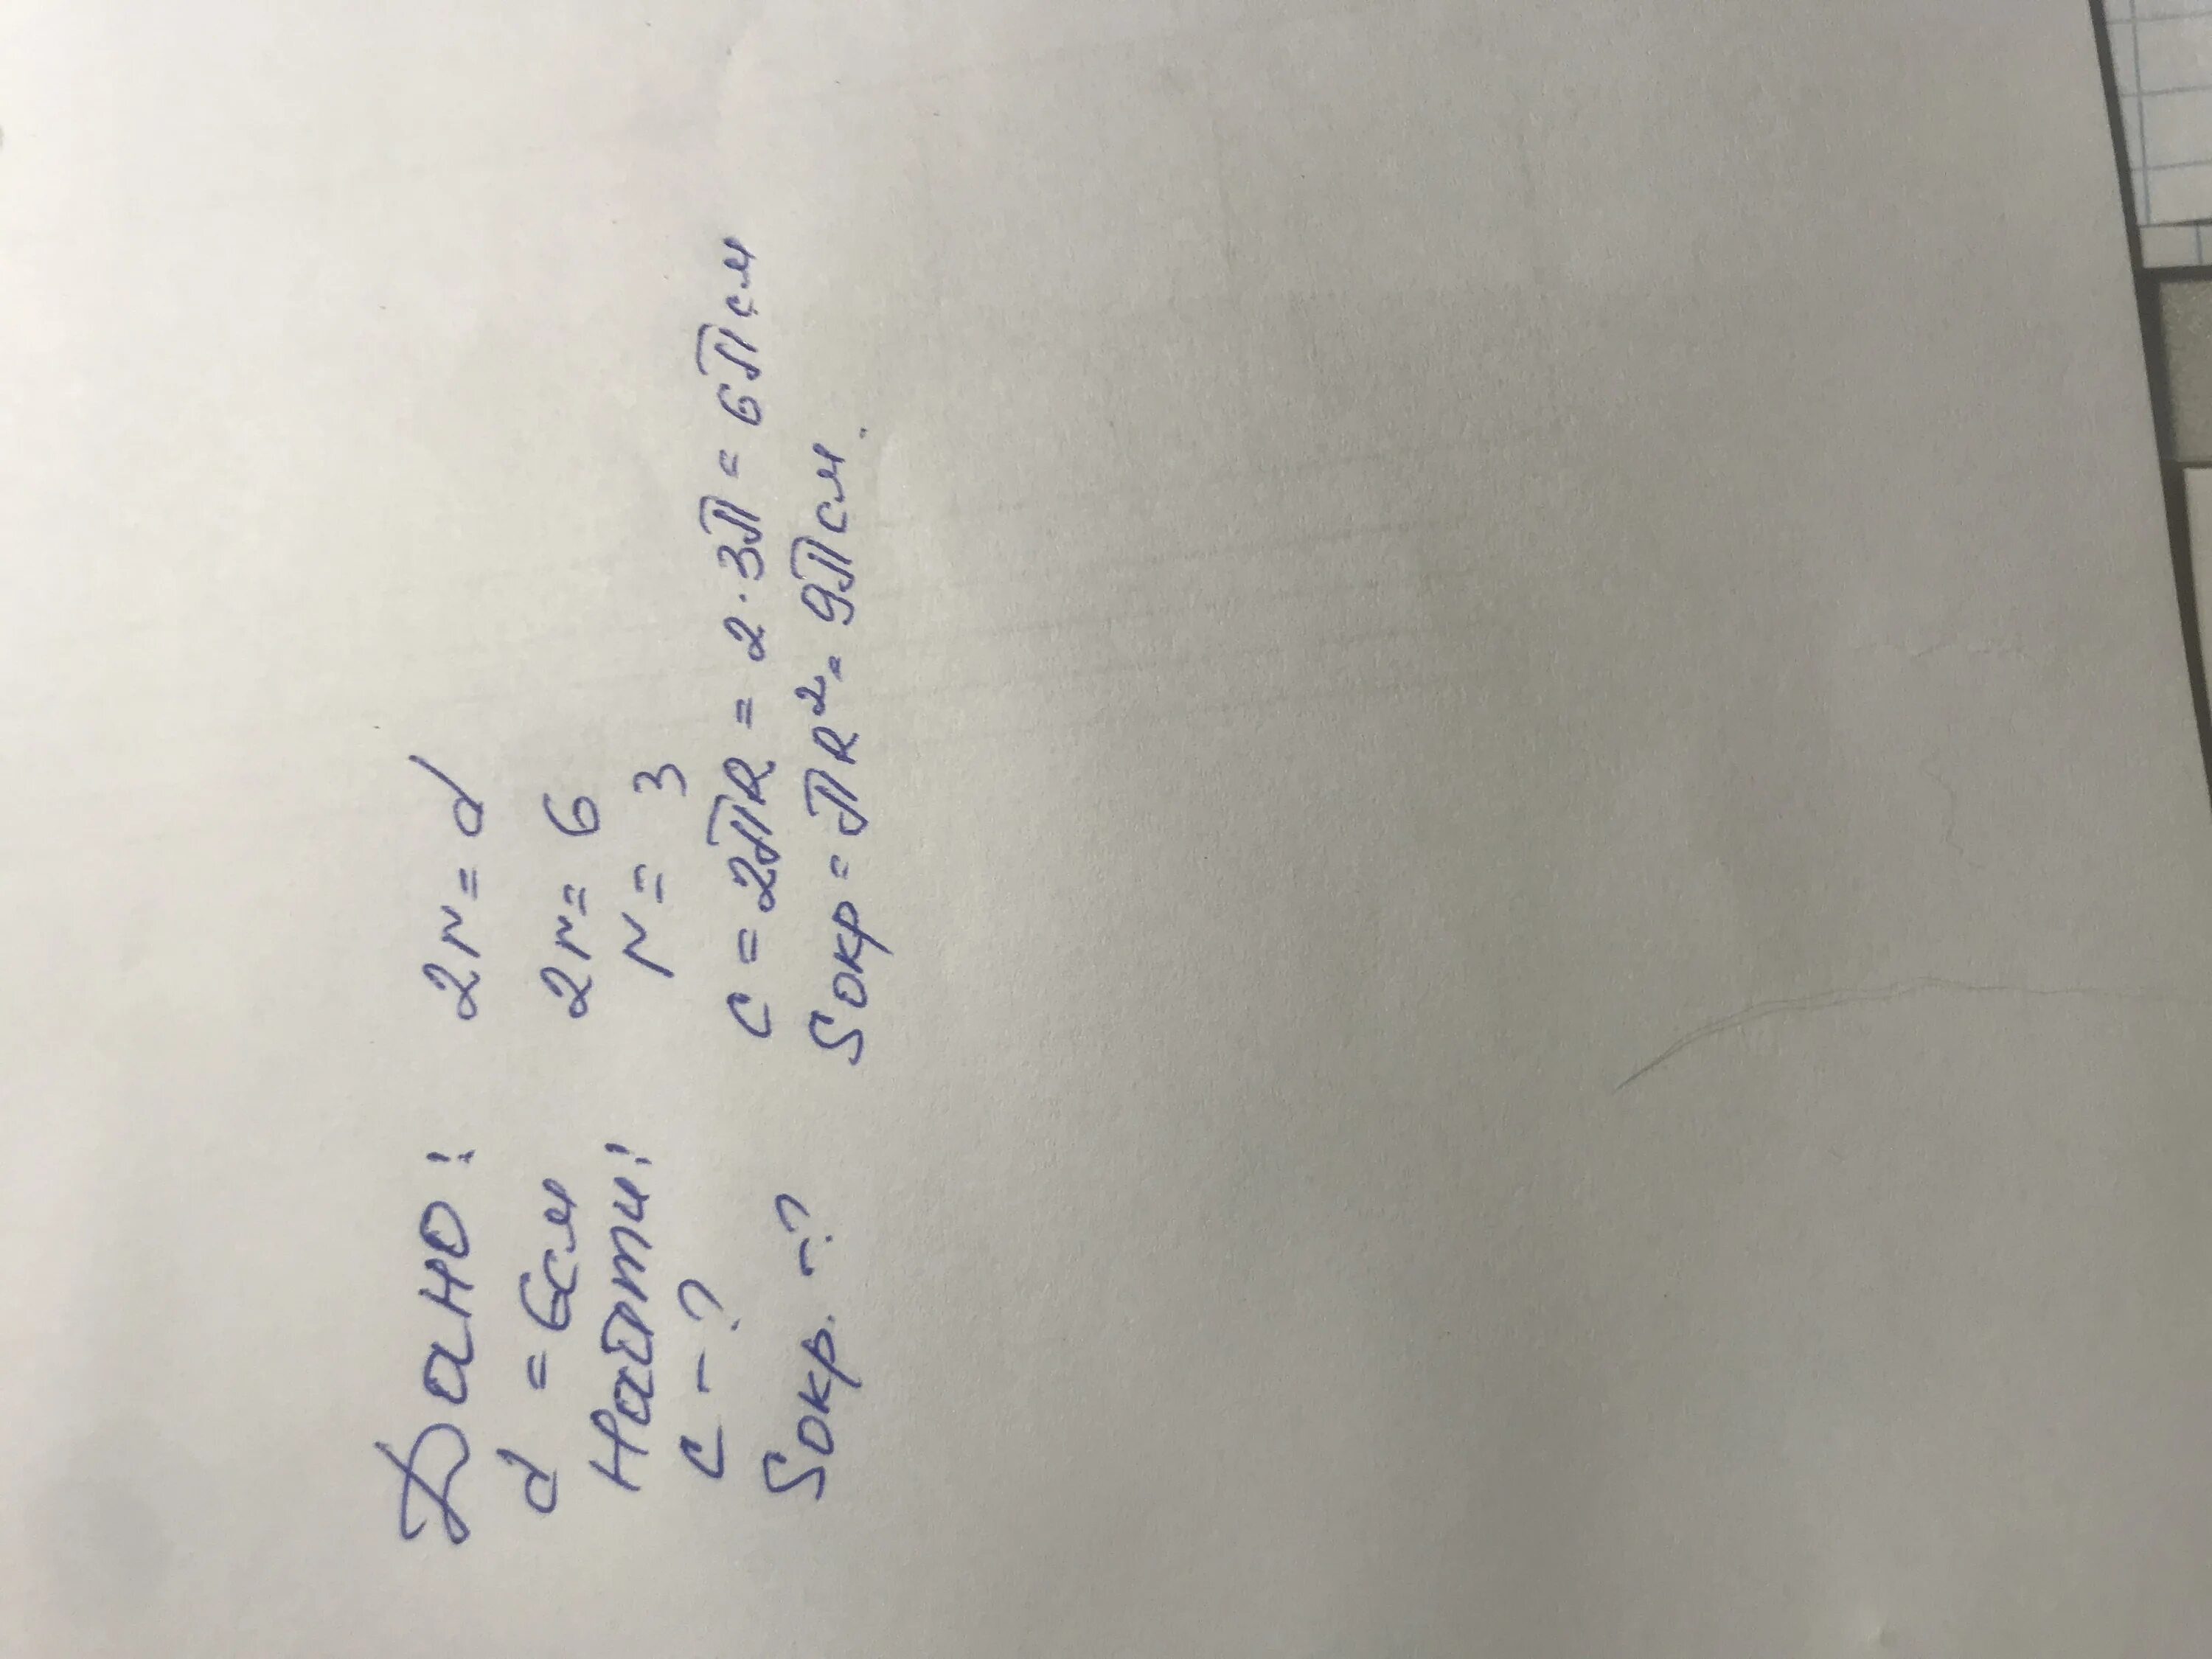 Дано:
d = 6см
Найти:
C - ?
Sокр. - ?
2r = d
2r = 6
r = 3
C = 2πR = 2 · 3π = 6π см
Sокр = πR² = 9π см.